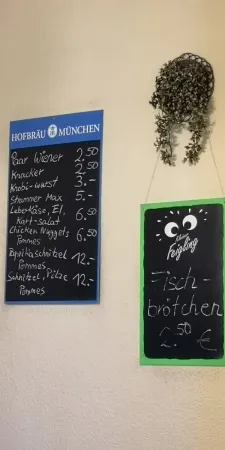 HOFBRÄU MÜNCHEN
Paar Wiener 2.50
Knacker 2.50
Knobi-wurst 3.-
Strammer Max 5.-
Leberkäse, Ei, 6.50
Kart-salat
Chicken Nuggets 6.50
Pommes
Paprikaschnitzel 12.-
Pommes
Schnitzel, Pilze 12.-
Pommes
Kleiner
Feigling
Fisch-
brötchen
2.50 €